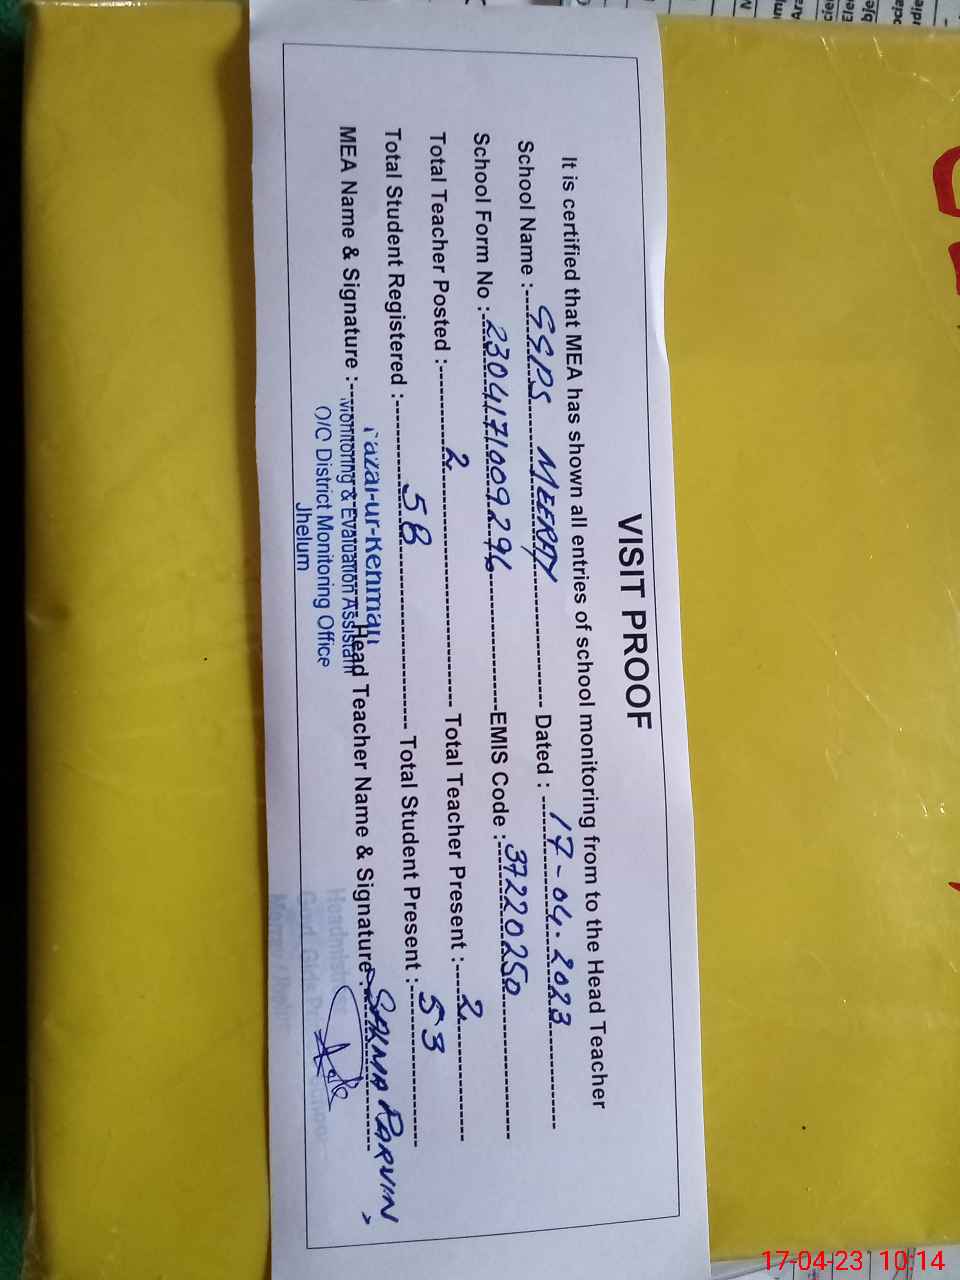 VISIT PROOF
It is certified that MEA has shown all entries of school monitoring from to the Head Teacher
School Name :- GGPS MEERAY Dated : 17-04-2023
School Form No : 2304171009296 EMIS Code : 37220250
Total Teacher Posted : 2 Total Teacher Present : 2
Total Student Registered : 58 Total Student Present : 53
MEA Name & Signature : Head Teacher Name & Signature : SALMA PARVIN
Monitoring & Evaluation Assistant
O/O District Monitoring Office
Jhelum
17-04-23 10:14